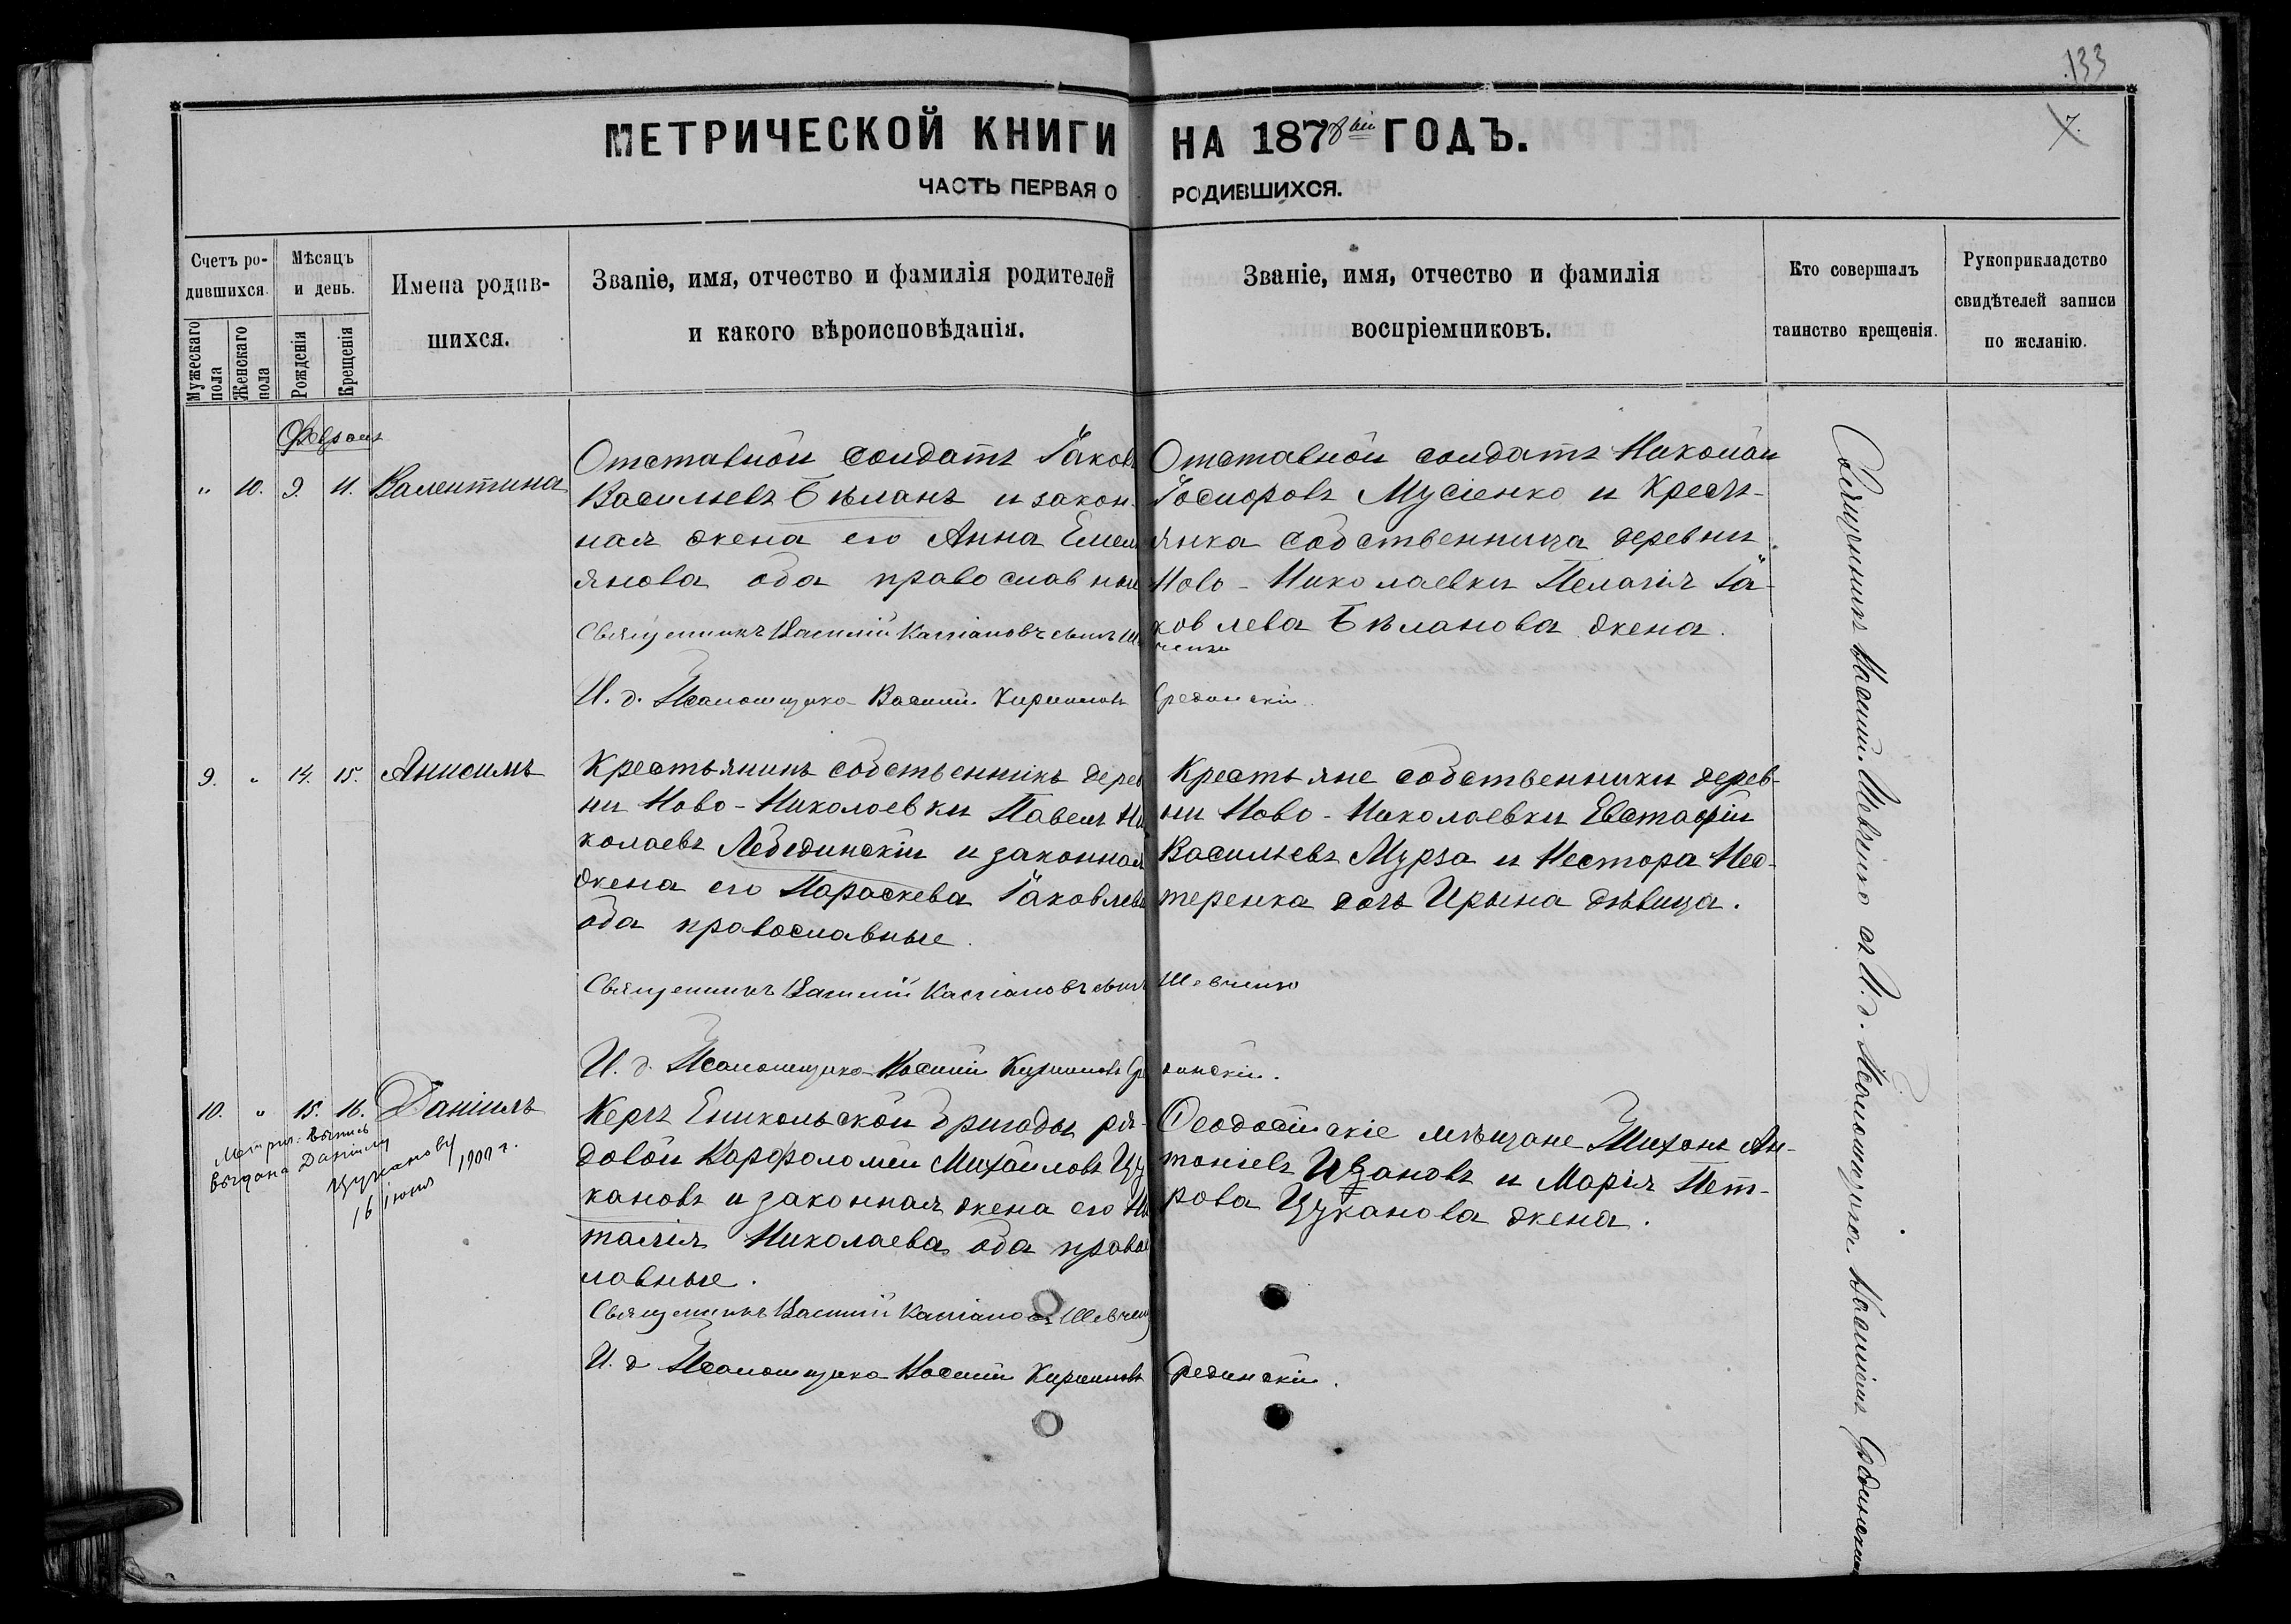 133
7.
МЕТРИЧЕСКОЙ КНИГИ НА 1878й ГОДЪ.
ЧАСТЬ ПЕРВАЯ О РОДИВШИХСЯ.
Счетъ ро-
дившихся.
Мужескаго
пола
Женскаго
пола
Мѣсяцъ
и день.
Рожденія
Крещенія
Имена родив-
шихся.
Званіе, имя, отчество и фамилія родителей
и какого вѣроисповѣданія.
Званіе, имя, отчество и фамилія
воспріемниковъ.
Кто совершалъ
таинство крещенія.
Рукоприкладство
свидѣтелей записи
по желанію.
" 10. 9. 11. Валентина
Отставной солдатъ Іаковъ
Васильевъ Бѣланъ и закон-
ная жена его Анна Емел
янова оба православные
Священникъ Василій Кассіановъ сынъ Шевченко
И. д. Псаломщика Василій Кирилловъ Срединскій
Отставной солдатъ Николай
Іосифовъ Мусіенко и Крестъ-
янка собственница деревни
Ново-Николаевки Пелагія Іа-
ковлева Бѣланова жена.
9. " 14. 15. Анисимъ
Крестьянинъ собственникъ дерев
ни Ново-Николаевки Павелъ Ни
колаевъ Лебединскій и законная
жена его Параскева Іаковлева
оба православные.
Священникъ Василій Кассіановъ сынъ Шевченко
И. д. Псаломщика Василій Кирилловъ Срединскій.
Крестьяне собственники дерев-
ни Ново-Николаевки Евстафій
Васильевъ Мурза и Нестора Нес-
теренка дочь Ирына дѣвица.
10. " 15. 16. Даніилъ
Метрич. выпись
выдана Даніилу
Цуканову
16 іюня 1900 г.
Керчъ Еникольской бригады ря-
довой Варфоломей Михайловъ Цу
кановъ и законная жена его На
талія Николаева оба правос
лавные.
Священникъ Василій Кассіановъ Шевченко
И. д Псаломщика Василій Кирилловъ Срединскій.
Феодосійскіе мѣщане Тихонъ Ан-
тоніевъ и Марія Пет-
рова Цуканова жена.
Священникъ Василій Шевченко съ И. д. Псаломщика Василіемъ Срединскимъ